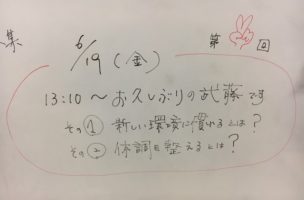 集
6/19(金) 第 回
13:10〜お久しぶりの武藤です
その① 新しい環境に慣れるとは?
その② 体調を整えるとは?